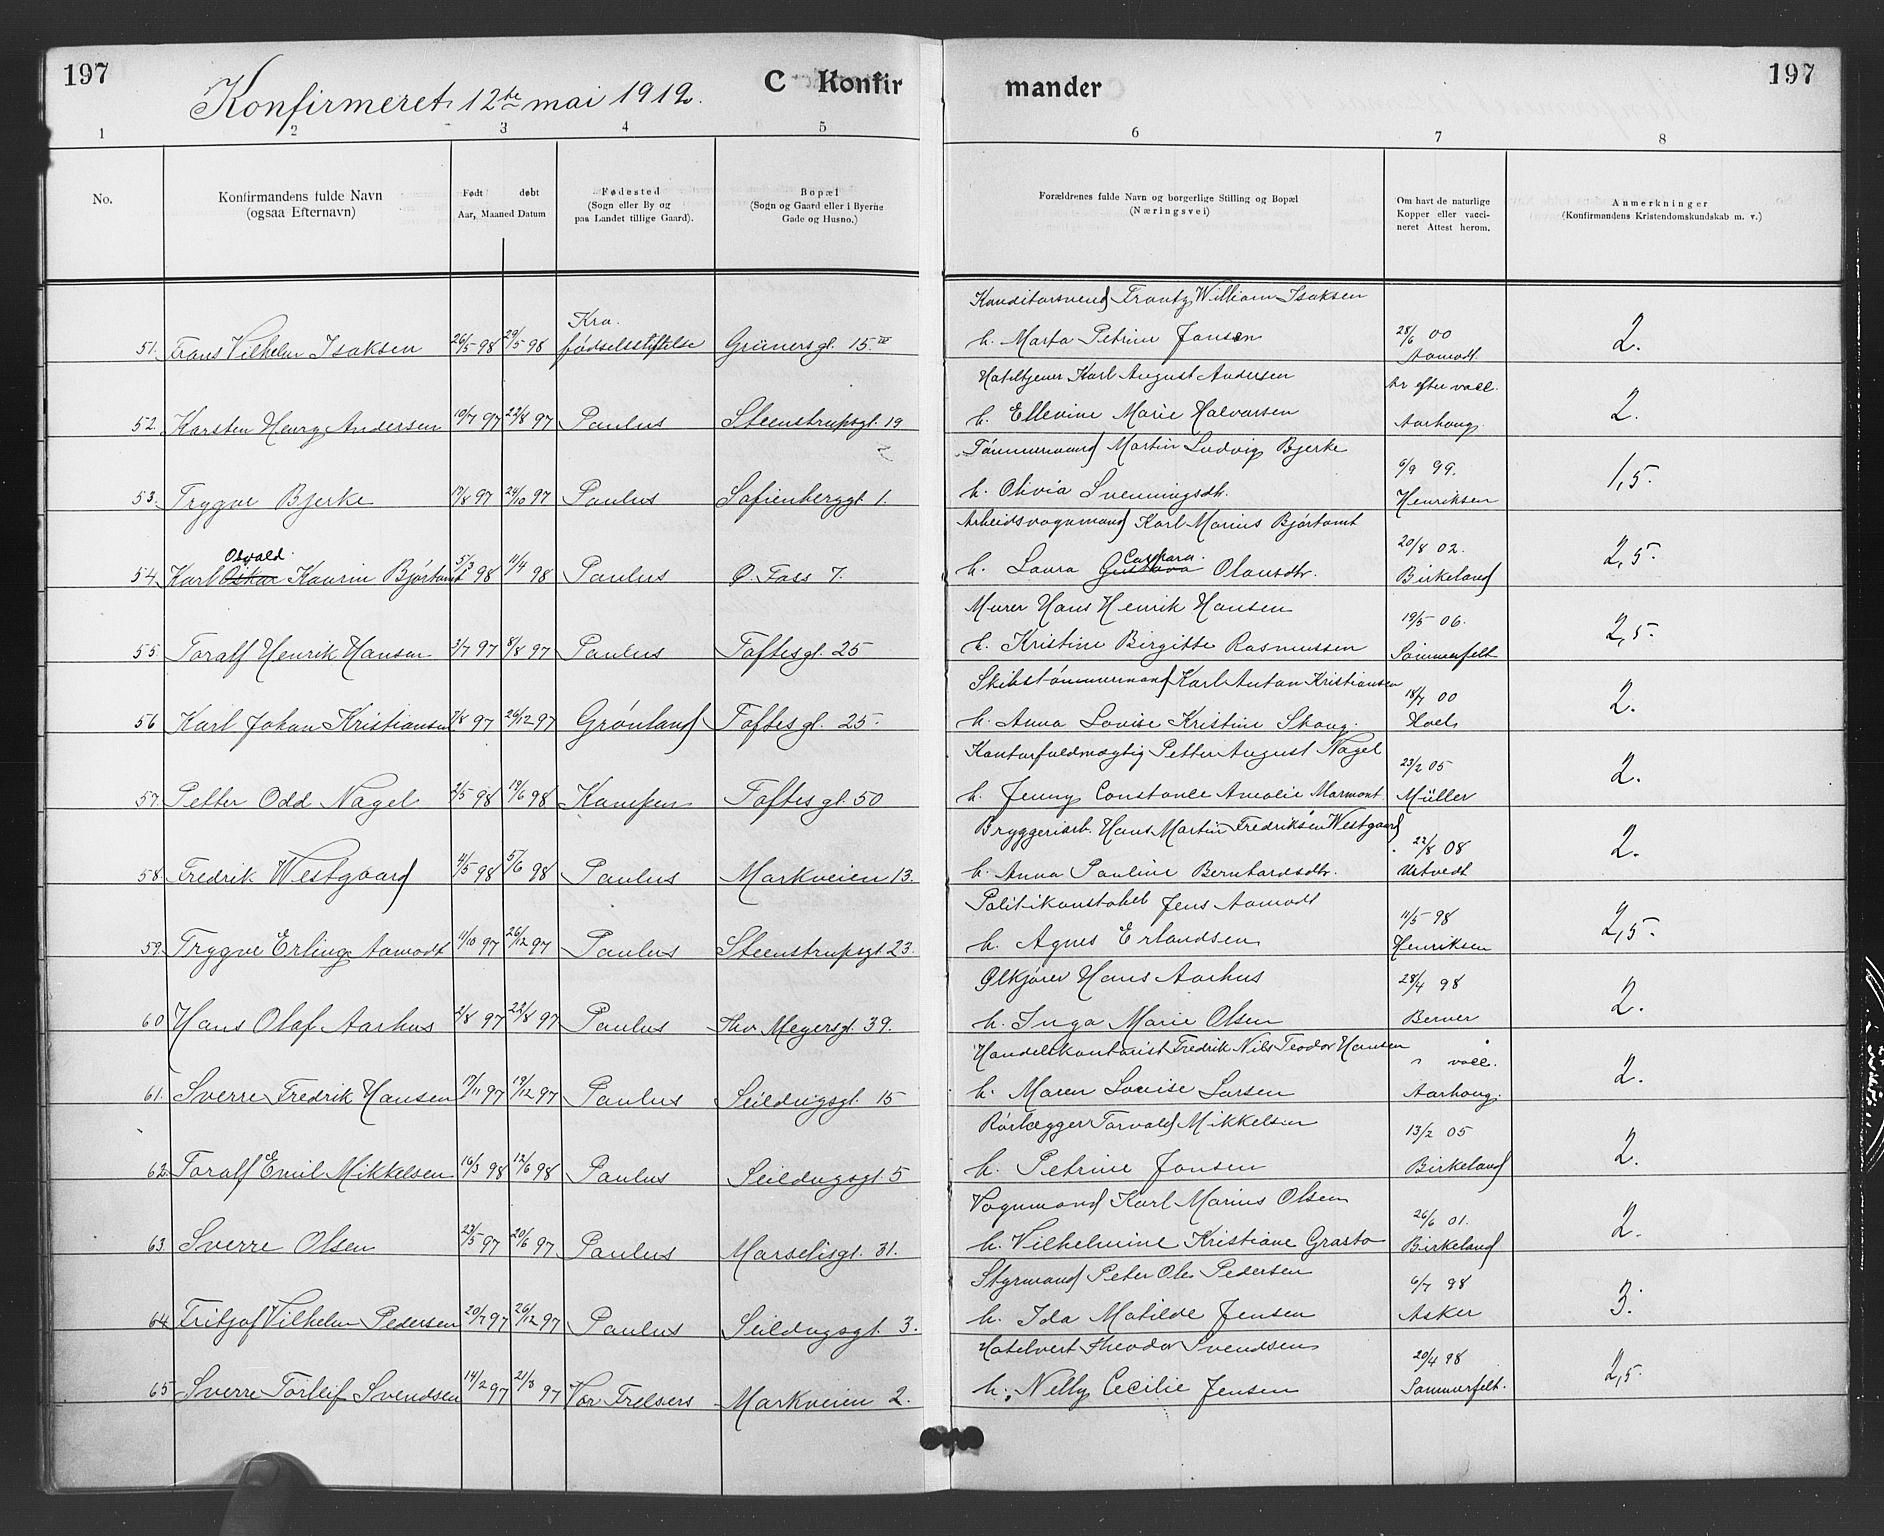 197
Konfirmeret 12te mai 1912.
C Konfir
mander
197
1 2 3 4 5 6 7 8
No.
Konfirmandens fulde Navn
(ogsaa Efternavn)
Født døbt
Aar, Maaned Datum
Fødested
(Sogn eller By og
paa Landet tillige Gaard).
Bopæl
(Sogn og Gaard eller i Byerne
Gade og Husno.)
Forældrenes fulde Navn og borgerlige Stilling og Bopæl
(Næringsvei)
Om havt de naturlige
Kopper eller vacci-
neret Attest herom.
Anmerkninger
(Konfirmandens Kristendomskundskab m. v.)
Konditorsvend Frantz William Isaksen
Kra.
51. Frans Vilhelm Isaksen 26/5 98 29/5 98 fødselsstiftelse Grünersgt. 15.III h. Marta Petrine Jonsen 28/6 00 2.
Aamodt
Hoteltjener Karl August Andersen
52. Karsten Henry Andersen 19/7 97 22/8 97 Paulus Steenstrupsgt. 19 h. Ellevine Marie Halvorsen Aarhoug. 2.
Tømmermand Martin Ludvig Bjerke 6/9 99.
53. Trygve Bjerke 17/8 97 24/10 97 Paulus Sofienberggt. 1. h. Olivia Svenningsdtr. Henriksen 1,5.
Arbeidsvognmand Karl Marius Bjørtomt 20/8 02.
Osvald Caspara.
54. Karl Oskar Kaurin Bjørtomt 5/3 98 11/4 98 Paulus Ø. Foss 7. h. Laura Gustava Olausdtr. Birkeland 2,5.
Murer Hans Henrik Hansen 19/5 06.
55. Toralf Henrik Hansen 3/7 97 8/8 97 Paulus Toftesgt. 25 h. Kristine Birgitte Rasmussen Sommerfelt 2,5.
Skibstømmermand Karl Anton Kristiansen 18/7 00
56 Karl Johan Kristiansen 7/8 97 26/12 97 Grønland Toftesgt. 25. h. Anna Lovise Kristine Skoug. Hoel 2.
Kontorfuldmægtig Petter August Nagel 23/2 05
57. Petter Odd Nagel 2/5 98 19/6 98 Kampen Toftesgt. 50 h. Jenny Constance Amalie Marmont Müller 2.
Bryggeriarb. Hans Martin Fredriksen Westgaard 22/8 08
58. Fredrik Westgaard 4/5 98 5/6 98 Paulus Markveien 13. h. Anna Pauline Bernhardsdtr. Urtvedt 2.
Politikonstabel Jens Aamodt 11/5 98
59. Trygve Erling Aamodt 11/10 97 26/12 97 Paulus Steenstrupsgt 23. h. Agnes Erlandsen Henriksen 2,5.
Ølkjører Hans Aarhus 28/4 98
60 Hans Olaf Aarhus 2/8 97 22/8 97 Paulus Thv Meyersgt. 39. h. Inga Marie Olsen Berner 2.
Handelskontorist Fredrik Nils Teodor Hansen
61. Sverre Fredrik Hansen 17/11 97 19/12 97 Paulus Seildugsgt. 15 h. Maren Lovise Larsen Aarhoug. 2.
Rørlægger Torvald Mikkelsen 13/2 05
62 Toralf Emil Mikkelsen 16/3 98 12/6 98 Paulus Seildugsgt. 5 h. Petrine Jonsen Birkeland 2.
Vognmand Karl Marius Olsen 26/6 01.
63. Sverre Olsen 23/5 97 20/6 97 Paulus Marselisgt. 31. h. Vilhelmine Kristiane Grasto Birkeland 2.
Styrmand Peter Ole Pedersen 6/7 98
64 Fritjof Vilhelm Pedersen 20/7 97 26/12 97 Paulus Seildugsgt. 3. h. Ida Matilde Jensen Asker 3.
Hotelvert Theodor Svendsen 20/4 98
65 Sverre Torleif Svendsen 14/2 97 21/3 97 Vor Frelsers Markveien 2. h. Nelly Cecilie Jensen Sommerfelt. 2,5.